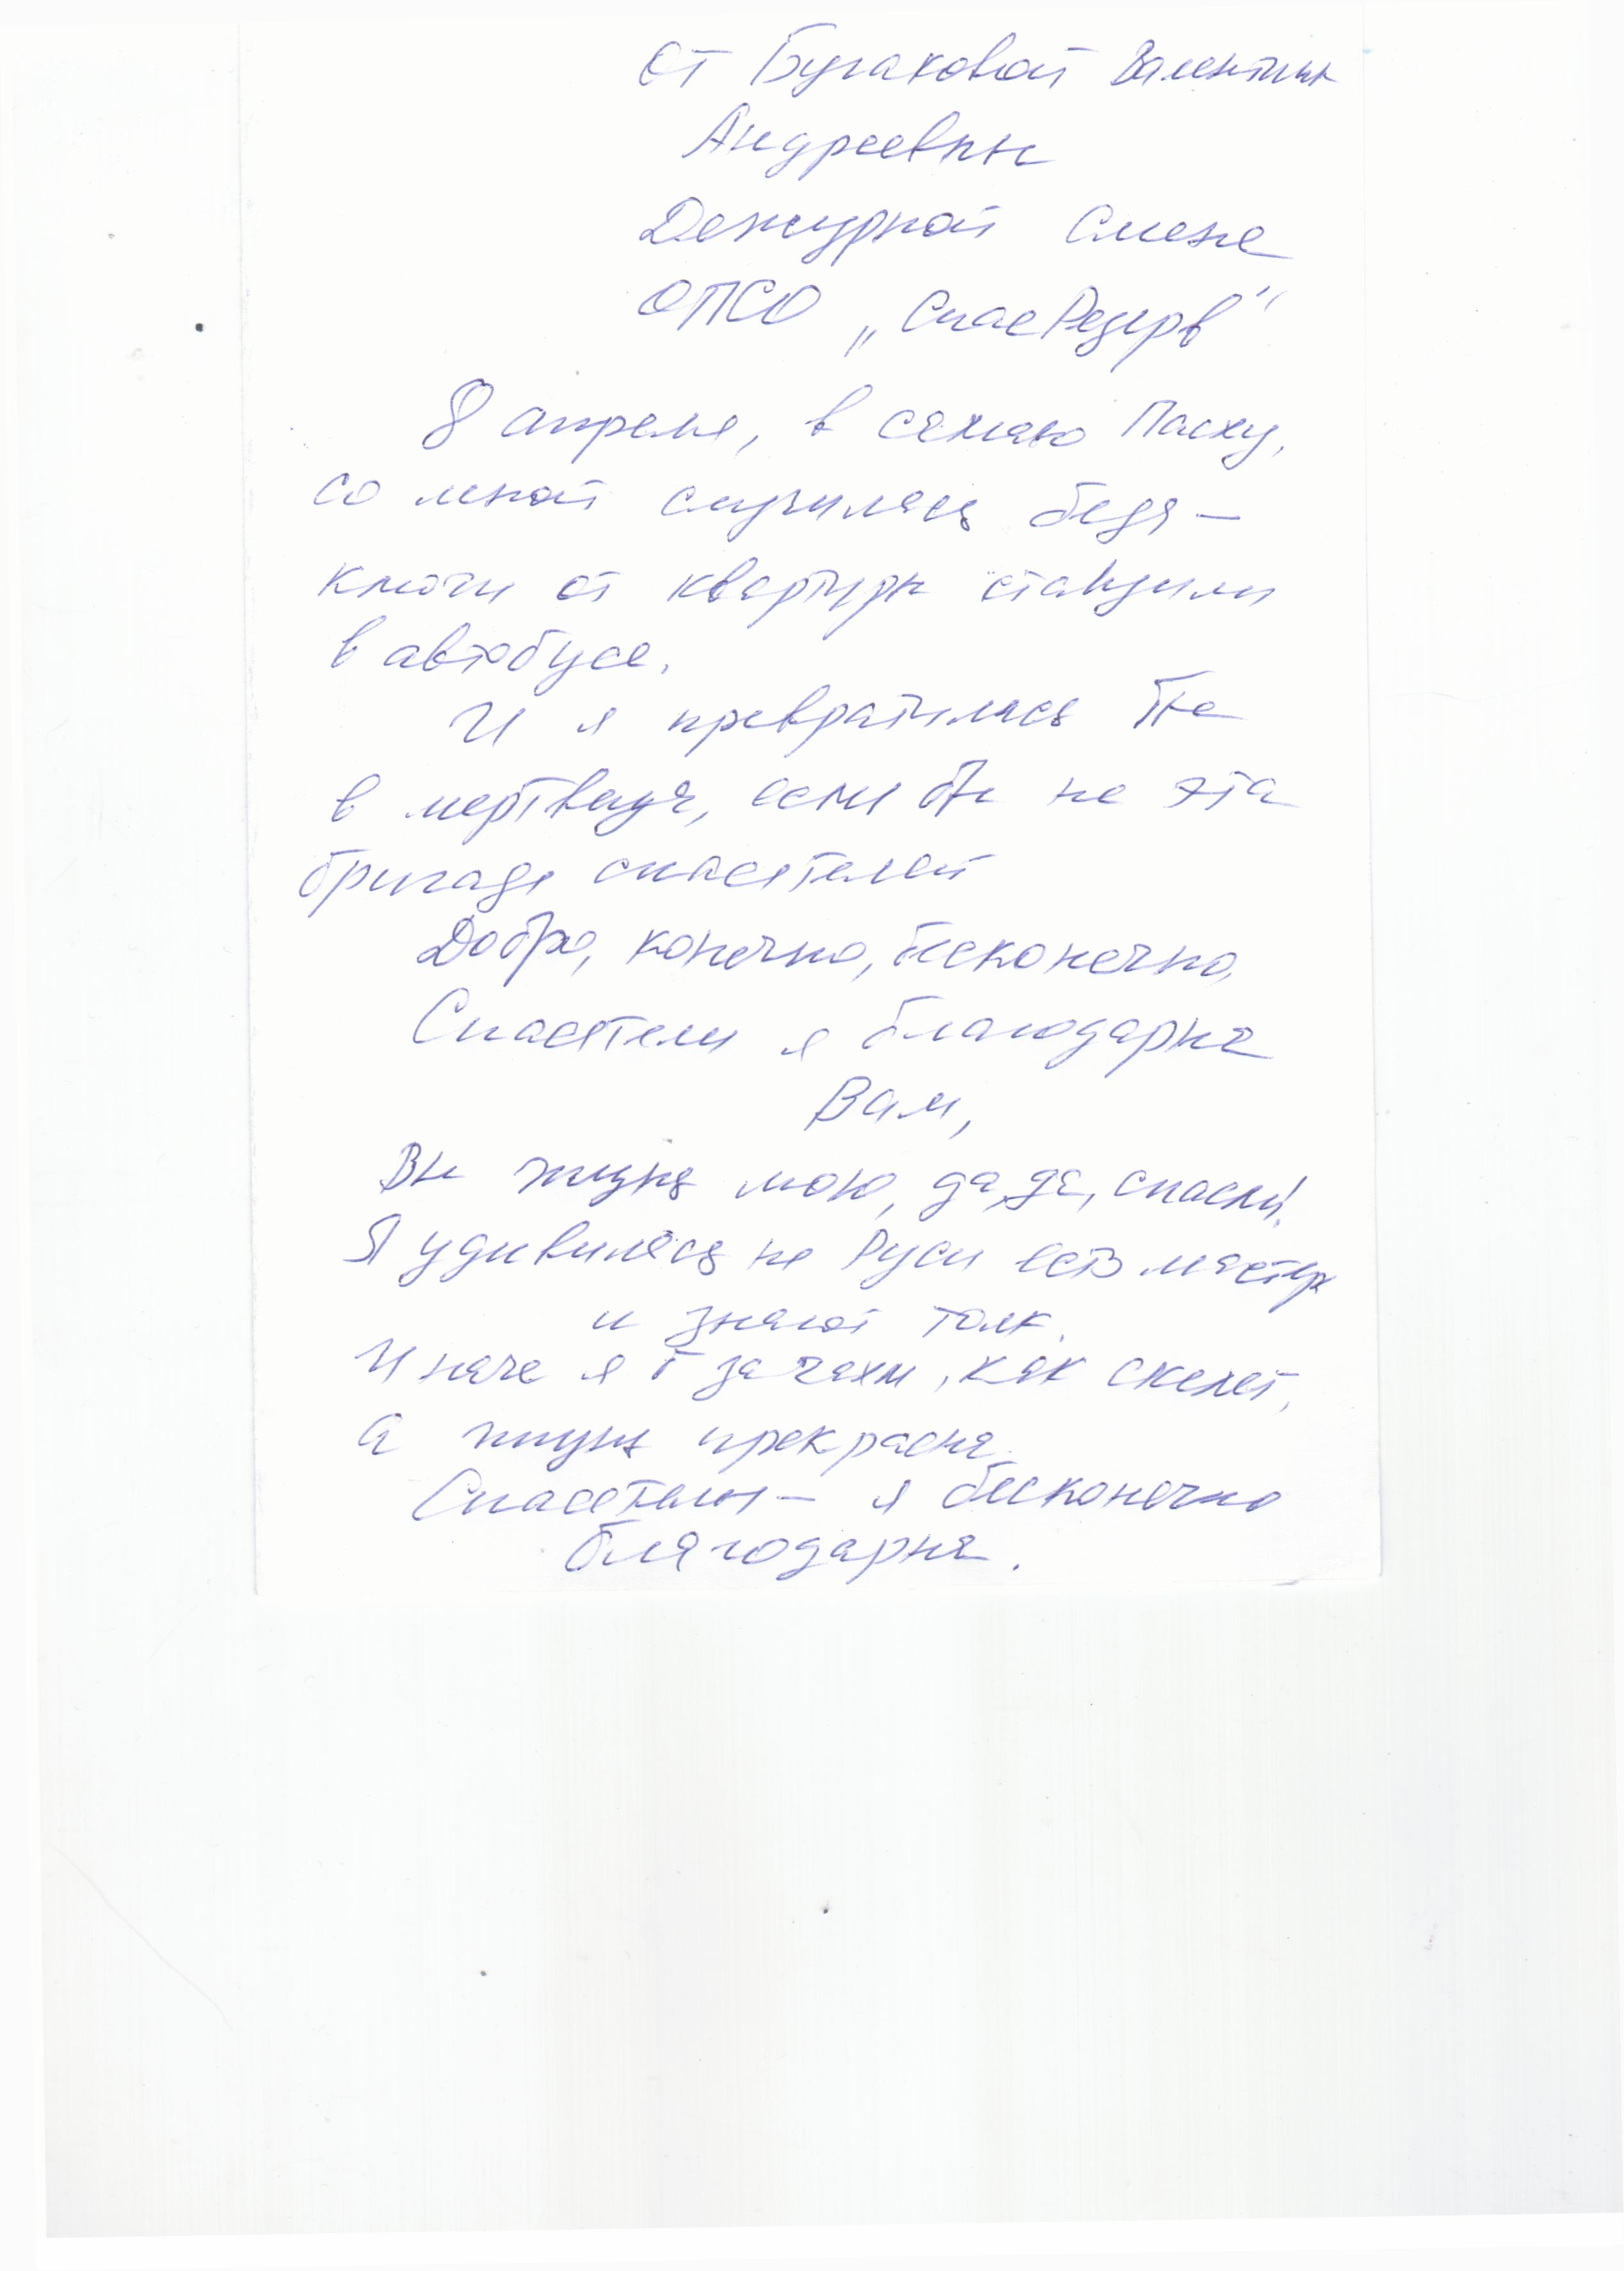 От Бугаковой Валентины
Андреевны
Дежурной Смене
ОПСО „СпасРезерв"
8 апреля, в самую Пасху,
со мной случилась беда –
ключи от квартиры стащили
в автобусе.
И я превратилась бы
в мертвеца, если бы не эта
бригада спасателей
Добро, конечно, бесконечно,
Спасатели я благодарна
Вам,
Вы жизнь мою, да, да, спасли!
Я удивилась на Руси есть мастера
и знают толк.
Иначе я б зачахла, как скелет,
а жизнь прекрасна.
Спасатели – я бесконечно
благодарна.